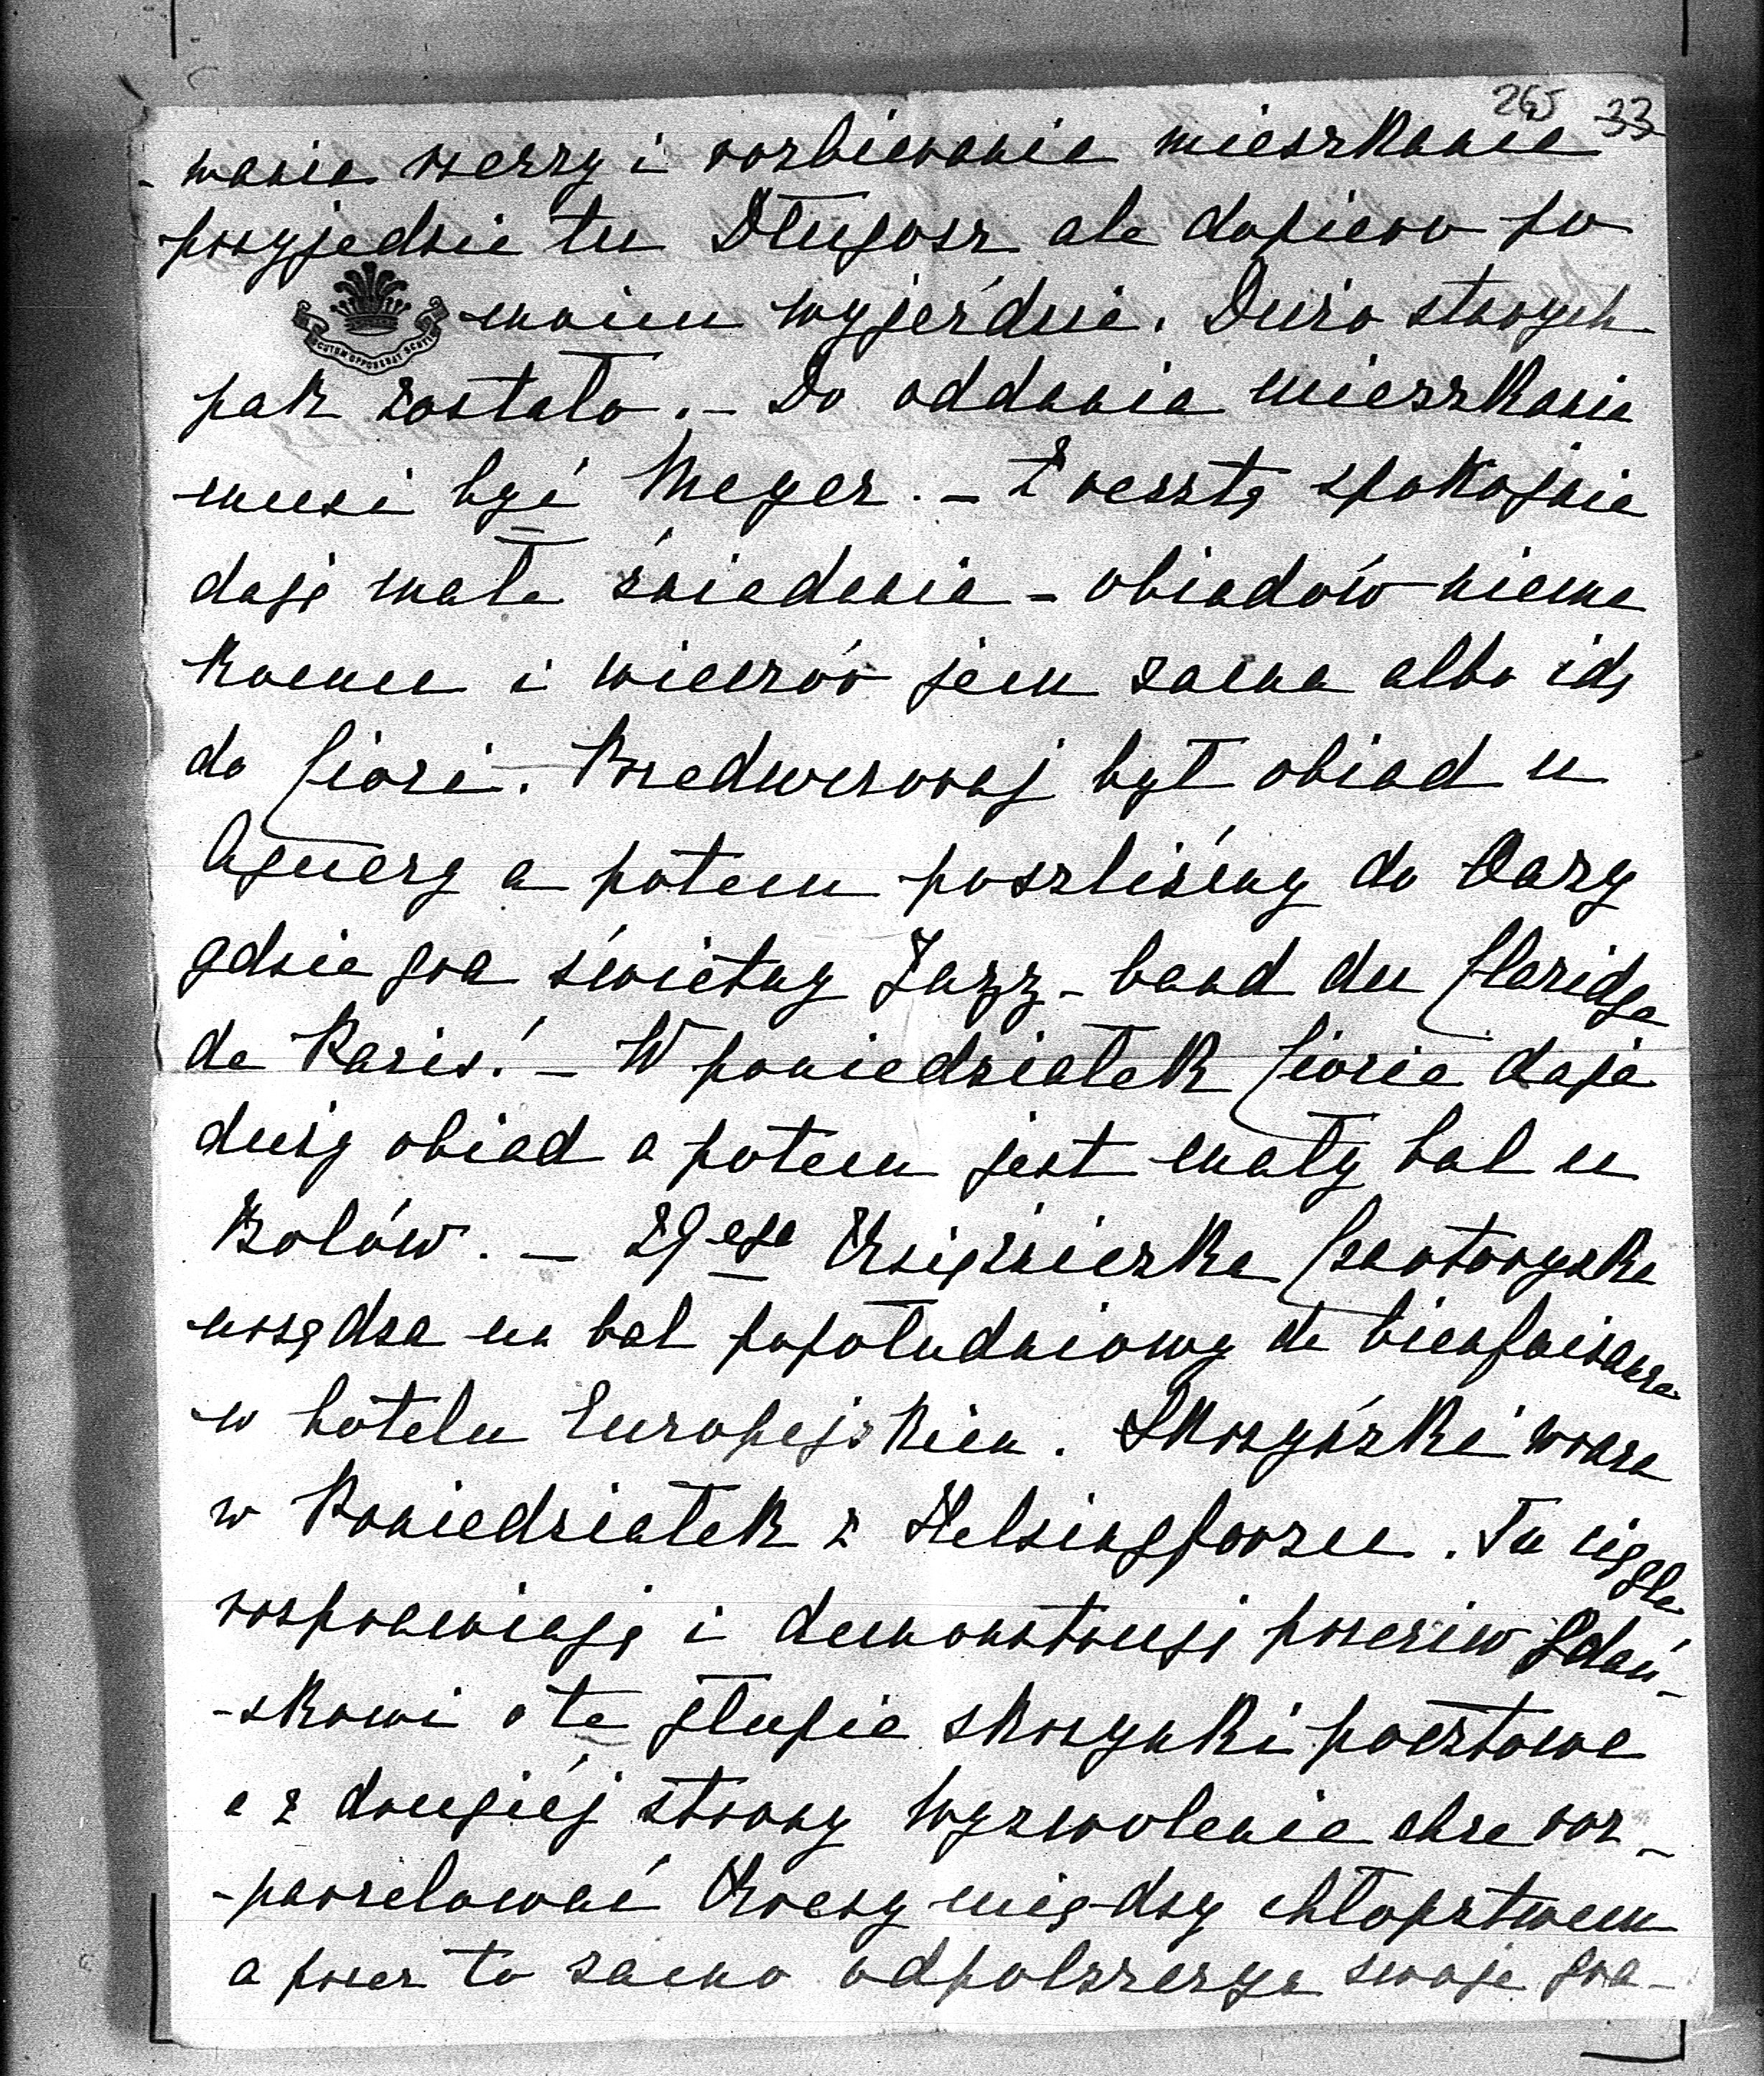 265 33
-wania rzeczy i rozbierania mieszkania
przyjedzie tu Długosz ale dopiero po
moim wyjeździe. Dużo starych
pak zostało. – Do oddania mieszkania
musi być Meyer. – Zresztą spokojnie
daję małe śniadania – obiadów niema
komu i wieczór jem sama albo idę
do Ciorci. Przedwczoraj był obiad u
a potem poszliśmy do Oazy
gdzie gra świetny Jazz-band du Claridge
de Paris! – W poniedziałek Ciorcia daje
duży obiad a potem jest mały bal u
Rolów. – 29ego Księżniczka Czartoryska
urządza un bal popołudniowy de bienfaisance
w hotelu Europejskim. Skrzyński wraca
w Poniedziałek z Helsingforsu. Tu ciągle
rozprawiają i demonstrują przeciw Gdań-
-skowi o te głupie skrzynki pocztowe
a z drugiéj strony Wyzwolenie chce roz-
-parcelować Kresy między chłopstwem
a przez to samo odpolszczyć swoje gra-